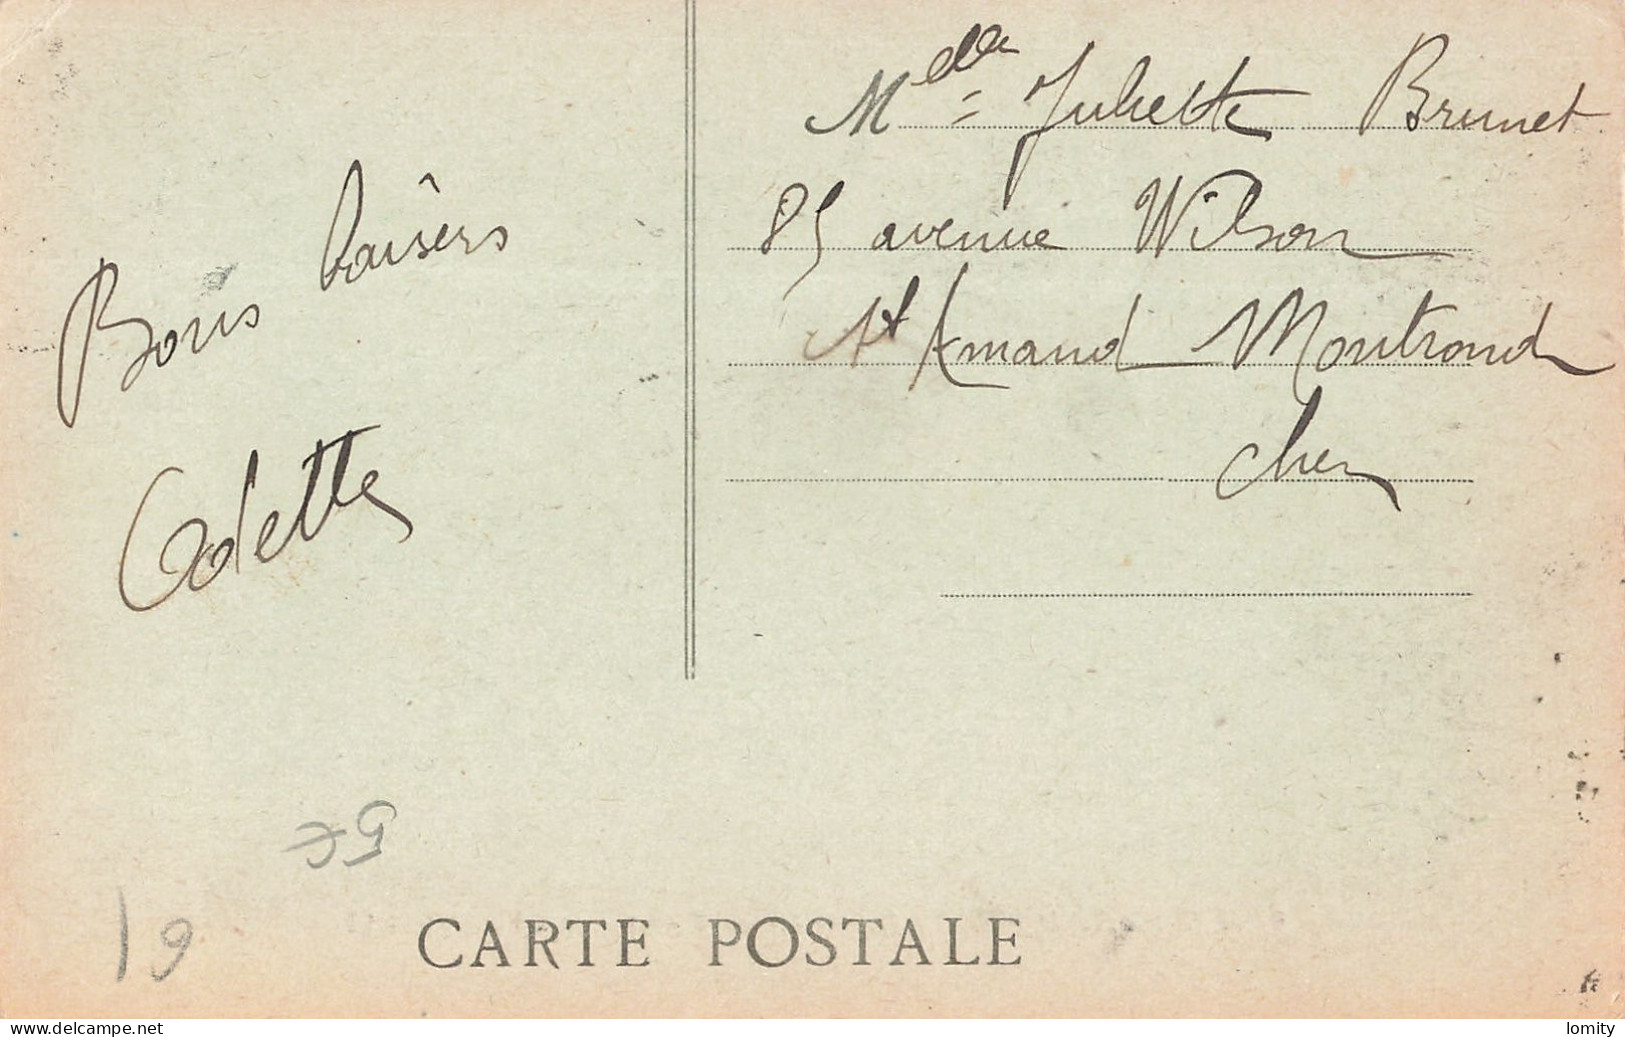 Bons baisers
Odette
Melle Juliette Brunet
85 avenue Wilson
St Amand Montrond
Cher
5€
19
CARTE POSTALE
www.delcampe.net
lomity